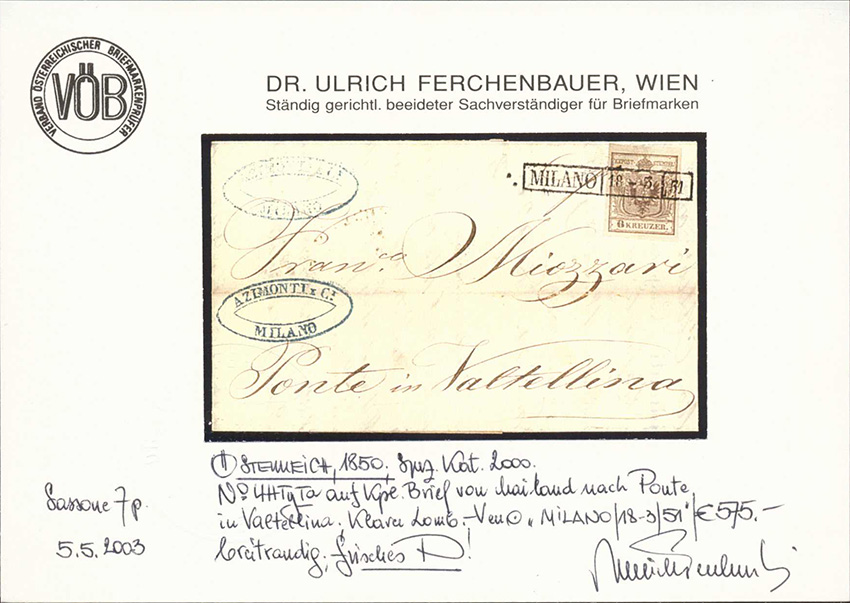 VERBAND ÖSTERREICHISCHER BRIEFMARKENPRÜFER
VÖB
DR. ULRICH FERCHENBAUER, WIEN
Ständig gerichtl. beeideter Sachverständiger für Briefmarken
MILANO 18 51
6 KREUZER.
MILANO
Fran.co Miozzari
AZIMONTI & C.
MILANO
Ponte in Valtellina
ÖSTERREICH, 1850, Spez. Kat. 2000.
auf kpl. Brief von Mailand nach Ponte
in Valtellina. Klarer Lomb.-Ven "MILANO/18-3/51" € 575.-
breitrandig, frisches
Sassone 7p.
5.5.2003